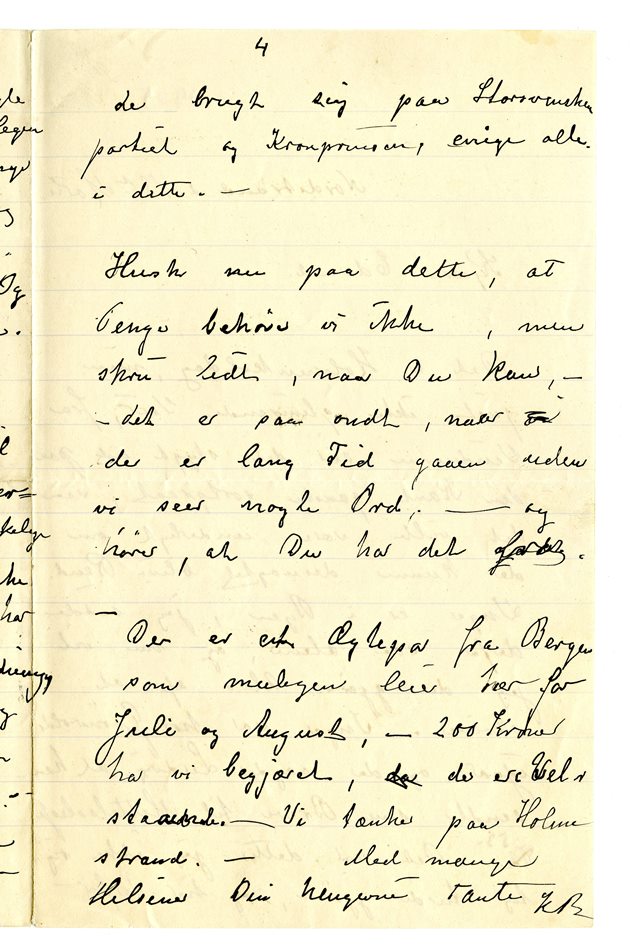 4
de brugt sig paa Storsvenske
partiet og Kronprinsen, enige alle
i dette. —
Husk nu paa dette, at
Penge behøve vi ikke, men
skriv lidt, naar Du kan, —
- det er saa ondt, naar
der er lang Tid gaaen uden
vi seer nogle Ord, — og
hører, at Du har det godt.
Der er et Ægtepar fra Bergen
som mulegen leie her for
Juli og August, — 200 Kroner
ha vi begjæret, da de ere Vel
staaende. — Vi tænke paa Holme
strand. — Med mange
Helsener Din hengivne Tante